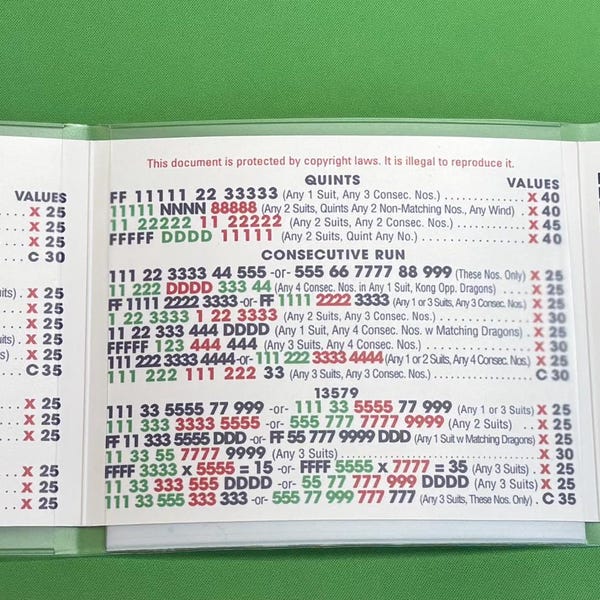 This document is protected by copyright laws. It is illegal to reproduce it.
VALUES
X 25
X 25
X 25
C 30
X 25
X 25
X 25
C 35
X 25
X 25
X 25
X 25
X 25
X 25
QUINTS VALUES
FF 11111 22 33333 (Any 1 Suit, Any 3 Consec. Nos.) X 40
11111 NNNN 88888 (Any 2 Suits, Quints Any 2 Non-Matching Nos., Any Wind) . X 40
11 22222 11 22222 (Any 2 Suits, Any 2 Consec. Nos.) X 45
FFFFF DDDD 11111 (Any 2 Suits, Quint Any No.) X 40
CONSECUTIVE RUN
111 22 3333 44 555 -or- 555 66 7777 88 999 (These Nos. Only) X 25
11 222 DDDD 333 44 (Any 4 Consec. Nos. in Any 1 Suit, Kong Opp. Dragons) . X 25
FF 1111 2222 3333 -or- FF 1111 2222 3333 (Any 1 or 3 Suits, Any 3 Consec. Nos.) X 25
1 22 3333 1 22 3333 (Any 2 Suits, Any 3 Consec. Nos.) X 30
11 22 333 444 DDDD (Any 1 Suit, Any 4 Consec. Nos. w Matching Dragons) . X 25
FFFFF 123 444 444 (Any 3 Suits, Any 4 Consec. Nos.) X 30
111 222 3333 4444 -or- 111 222 3333 4444 (Any 1 or 2 Suits, Any 4 Consec. Nos.) X 25
111 222 111 222 33 (Any 3 Suits, Any 3 Consec. Nos.) C 30
13579
111 33 5555 77 999 -or- 111 33 5555 77 999 (Any 1 or 3 Suits) X 25
111 333 3333 5555 -or- 555 777 7777 9999 (Any 2 Suits) X 25
FF 11 333 5555 DDD -or- FF 55 777 9999 DDD (Any 1 Suit w Matching Dragons) X 25
11 33 55 7777 9999 (Any 3 Suits) X 30
FFFF 3333 x 5555 = 15 -or- FFFF 5555 x 7777 = 35 (Any 3 Suits) . X 25
11 33 333 555 DDDD -or- 55 77 777 999 DDDD (Any 3 Suits) X 25
111 33 555 333 333 -or- 555 77 999 777 777 (Any 3 Suits, These Nos. Only) . C 35